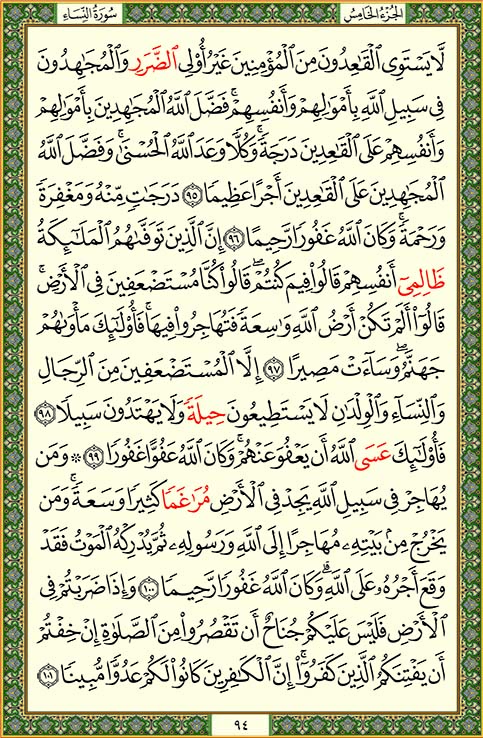 سُورَةُ النِّسَاءِ الجُزْءُ الخَامِسُ
لَّا يَسْتَوِى ٱلْقَٰعِدُونَ مِنَ ٱلْمُؤْمِنِينَ غَيْرُ أُو۟لِى ٱلضَّرَرِ وَٱلْمُجَٰهِدُونَ
فِى سَبِيلِ ٱللَّهِ بِأَمْوَٰلِهِمْ وَأَنفُسِهِمْ ۚ فَضَّلَ ٱللَّهُ ٱلْمُجَٰهِدِينَ بِأَمْوَٰلِهِمْ
وَأَنفُسِهِمْ عَلَى ٱلْقَٰعِدِينَ دَرَجَةً ۚ وَكُلًّا وَعَدَ ٱللَّهُ ٱلْحُسْنَىٰ ۚ وَفَضَّلَ ٱللَّهُ
ٱلْمُجَٰهِدِينَ عَلَى ٱلْقَٰعِدِينَ أَجْرًا عَظِيمًا ٩٥ دَرَجَٰتٍ مِّنْهُ وَمَغْفِرَةً
وَرَحْمَةً ۚ وَكَانَ ٱللَّهُ غَفُورًا رَّحِيمًا ٩٦ إِنَّ ٱلَّذِينَ تَوَفَّىٰهُمُ ٱلْمَلَٰٓئِكَةُ
ظَالِمِىٓ أَنفُسِهِمْ قَالُوا۟ فِيمَ كُنتُمْ ۖ قَالُوا۟ كُنَّا مُسْتَضْعَفِينَ فِى ٱلْأَرْضِ ۚ
قَالُوٓا۟ أَلَمْ تَكُنْ أَرْضُ ٱللَّهِ وَٰسِعَةً فَتُهَاجِرُوا۟ فِيهَا ۚ فَأُو۟لَٰٓئِكَ مَأْوَىٰهُمْ
جَهَنَّمُ ۖ وَسَآءَتْ مَصِيرًا ٩٧ إِلَّا ٱلْمُسْتَضْعَفِينَ مِنَ ٱلرِّجَالِ
وَٱلنِّسَآءِ وَٱلْوِلْدَٰنِ لَا يَسْتَطِيعُونَ حِيلَةً وَلَا يَهْتَدُونَ سَبِيلًا ٩٨
فَأُو۟لَٰٓئِكَ عَسَى ٱللَّهُ أَن يَعْفُوَ عَنْهُمْ ۚ وَكَانَ ٱللَّهُ عَفُوًّا غَفُورًا ٩٩ ۞ وَمَن
يُهَاجِرْ فِى سَبِيلِ ٱللَّهِ يَجِدْ فِى ٱلْأَرْضِ مُرَٰغَمًا كَثِيرًا وَسَعَةً ۚ وَمَن
يَخْرُجْ مِنۢ بَيْتِهِۦ مُهَاجِرًا إِلَى ٱللَّهِ وَرَسُولِهِۦ ثُمَّ يُدْرِكْهُ ٱلْمَوْتُ فَقَدْ
وَقَعَ أَجْرُهُۥ عَلَى ٱللَّهِ ۗ وَكَانَ ٱللَّهُ غَفُورًا رَّحِيمًا ١٠٠ وَإِذَا ضَرَبْتُمْ فِى
ٱلْأَرْضِ فَلَيْسَ عَلَيْكُمْ جُنَاحٌ أَن تَقْصُرُوا۟ مِنَ ٱلصَّلَوٰةِ إِنْ خِفْتُمْ
أَن يَفْتِنَكُمُ ٱلَّذِينَ كَفَرُوٓا۟ ۚ إِنَّ ٱلْكَٰفِرِينَ كَانُوا۟ لَكُمْ عَدُوًّا مُّبِينًا ١٠١
٩٤